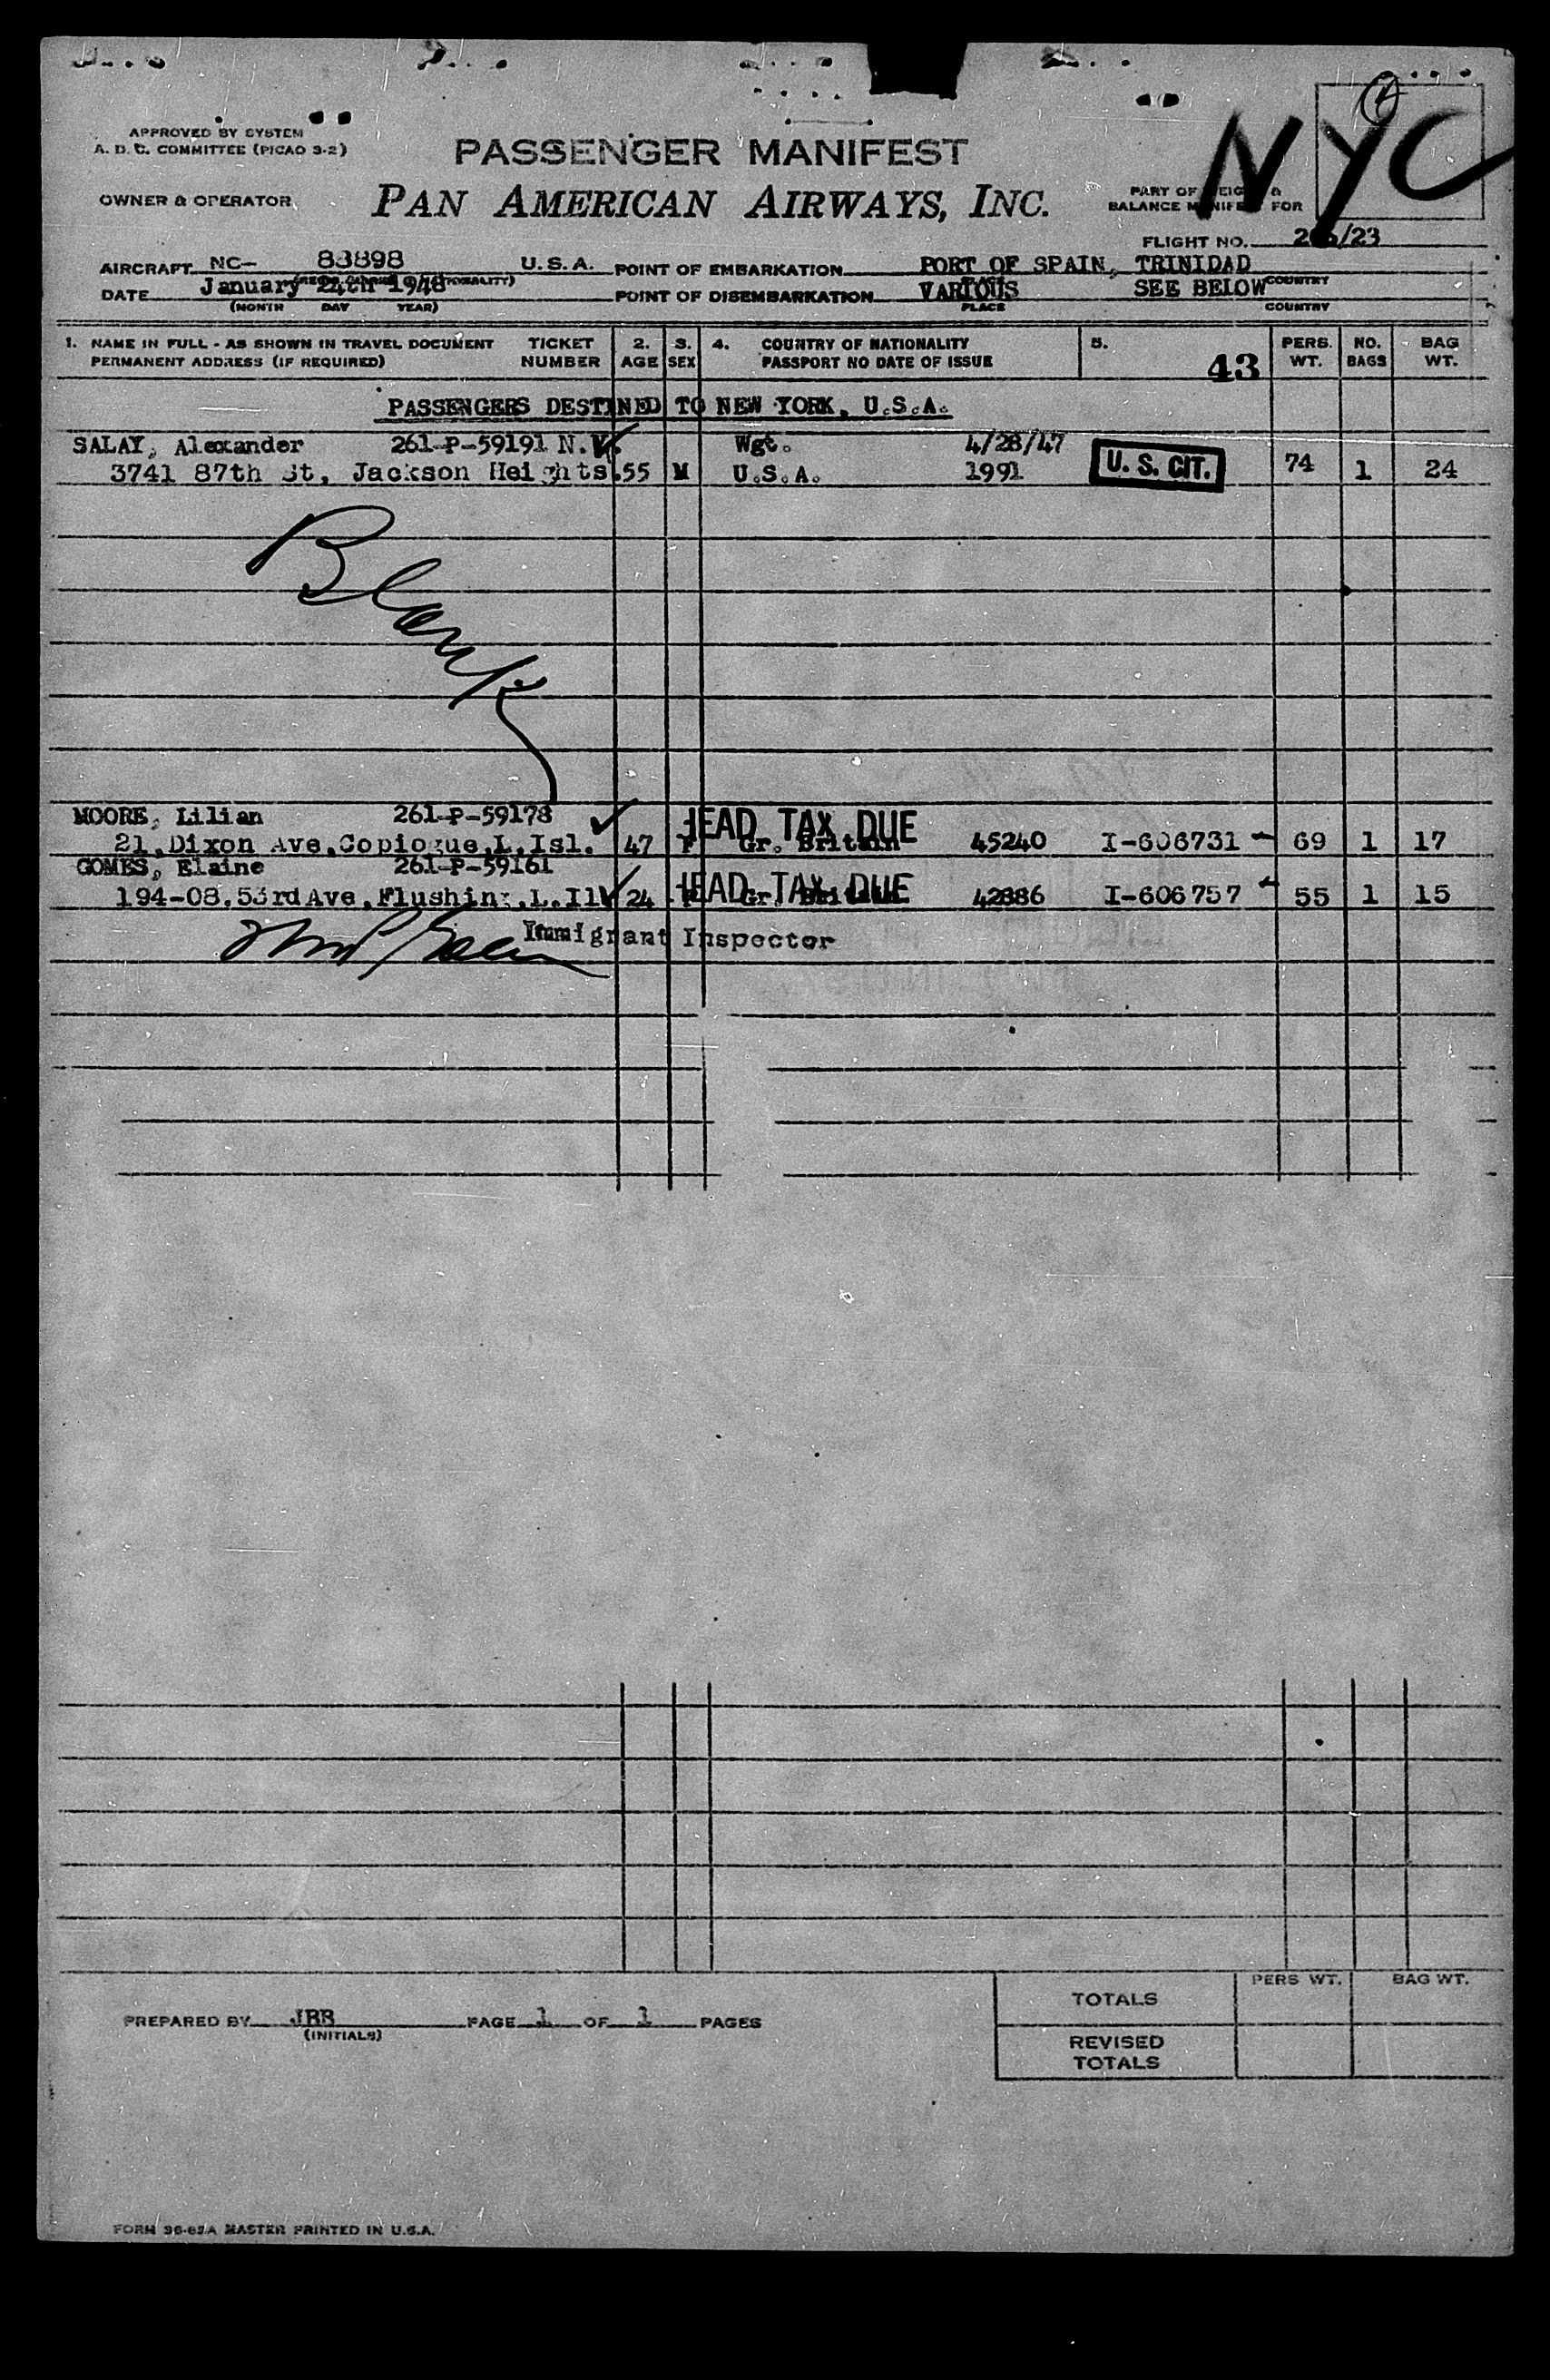 NYC
APPROVED BY SYSTEM
A. D. C. COMMITTEE (PICAO 3-2)
PASSENGER MANIFEST
OWNER & OPERATOR
PAN AMERICAN AIRWAYS, INC.
PART OF WEIGHT &
BALANCE MANIFEST FOR
FLIGHT NO. /23
AIRCRAFT NC- 88898 U.S.A. POINT OF EMBARKATION PORT OF SPAIN, TRINIDAD
DATE January 24th 1948 POINT OF DISEMBARKATION VARIOUS SEE BELOW COUNTRY
(MONTH DAY YEAR) PLACE COUNTRY
1. NAME IN FULL - AS SHOWN IN TRAVEL DOCUMENT TICKET 2. 3. 4. COUNTRY OF NATIONALITY 5. PERS. NO. BAG
PERMANENT ADDRESS (IF REQUIRED) NUMBER AGE SEX PASSPORT NO DATE OF ISSUE 43 WT. BAGS WT.
PASSENGERS DESTINED TO NEW YORK, U.S.A.
SALAY, Alexander 261-P-59191 N.Y. Wgt. 4/28/47
3741 87th St, Jackson Heights. 55 M U.S.A. 1991 U. S. CIT. 74 1 24
Blank
MOORE, Lilian 261-P-59178 HEAD TAX DUE
21, Dixon Ave, Copiogue, L.Isl. 47 F Gr. Britain 45240 I-606731 69 1 17
GOMES, Elaine 261-P-59161 HEAD TAX DUE
194-08, 53rd Ave, Flushing, L.Il 24 F Gr. Britain 42886 I-606757 55 1 15
Immigrant Inspector
PERS WT. BAG WT.
TOTALS
PREPARED BY JBB PAGE 1 OF 1 PAGES
(INITIALS)
REVISED
TOTALS
FORM 96-62A MASTER PRINTED IN U.S.A.